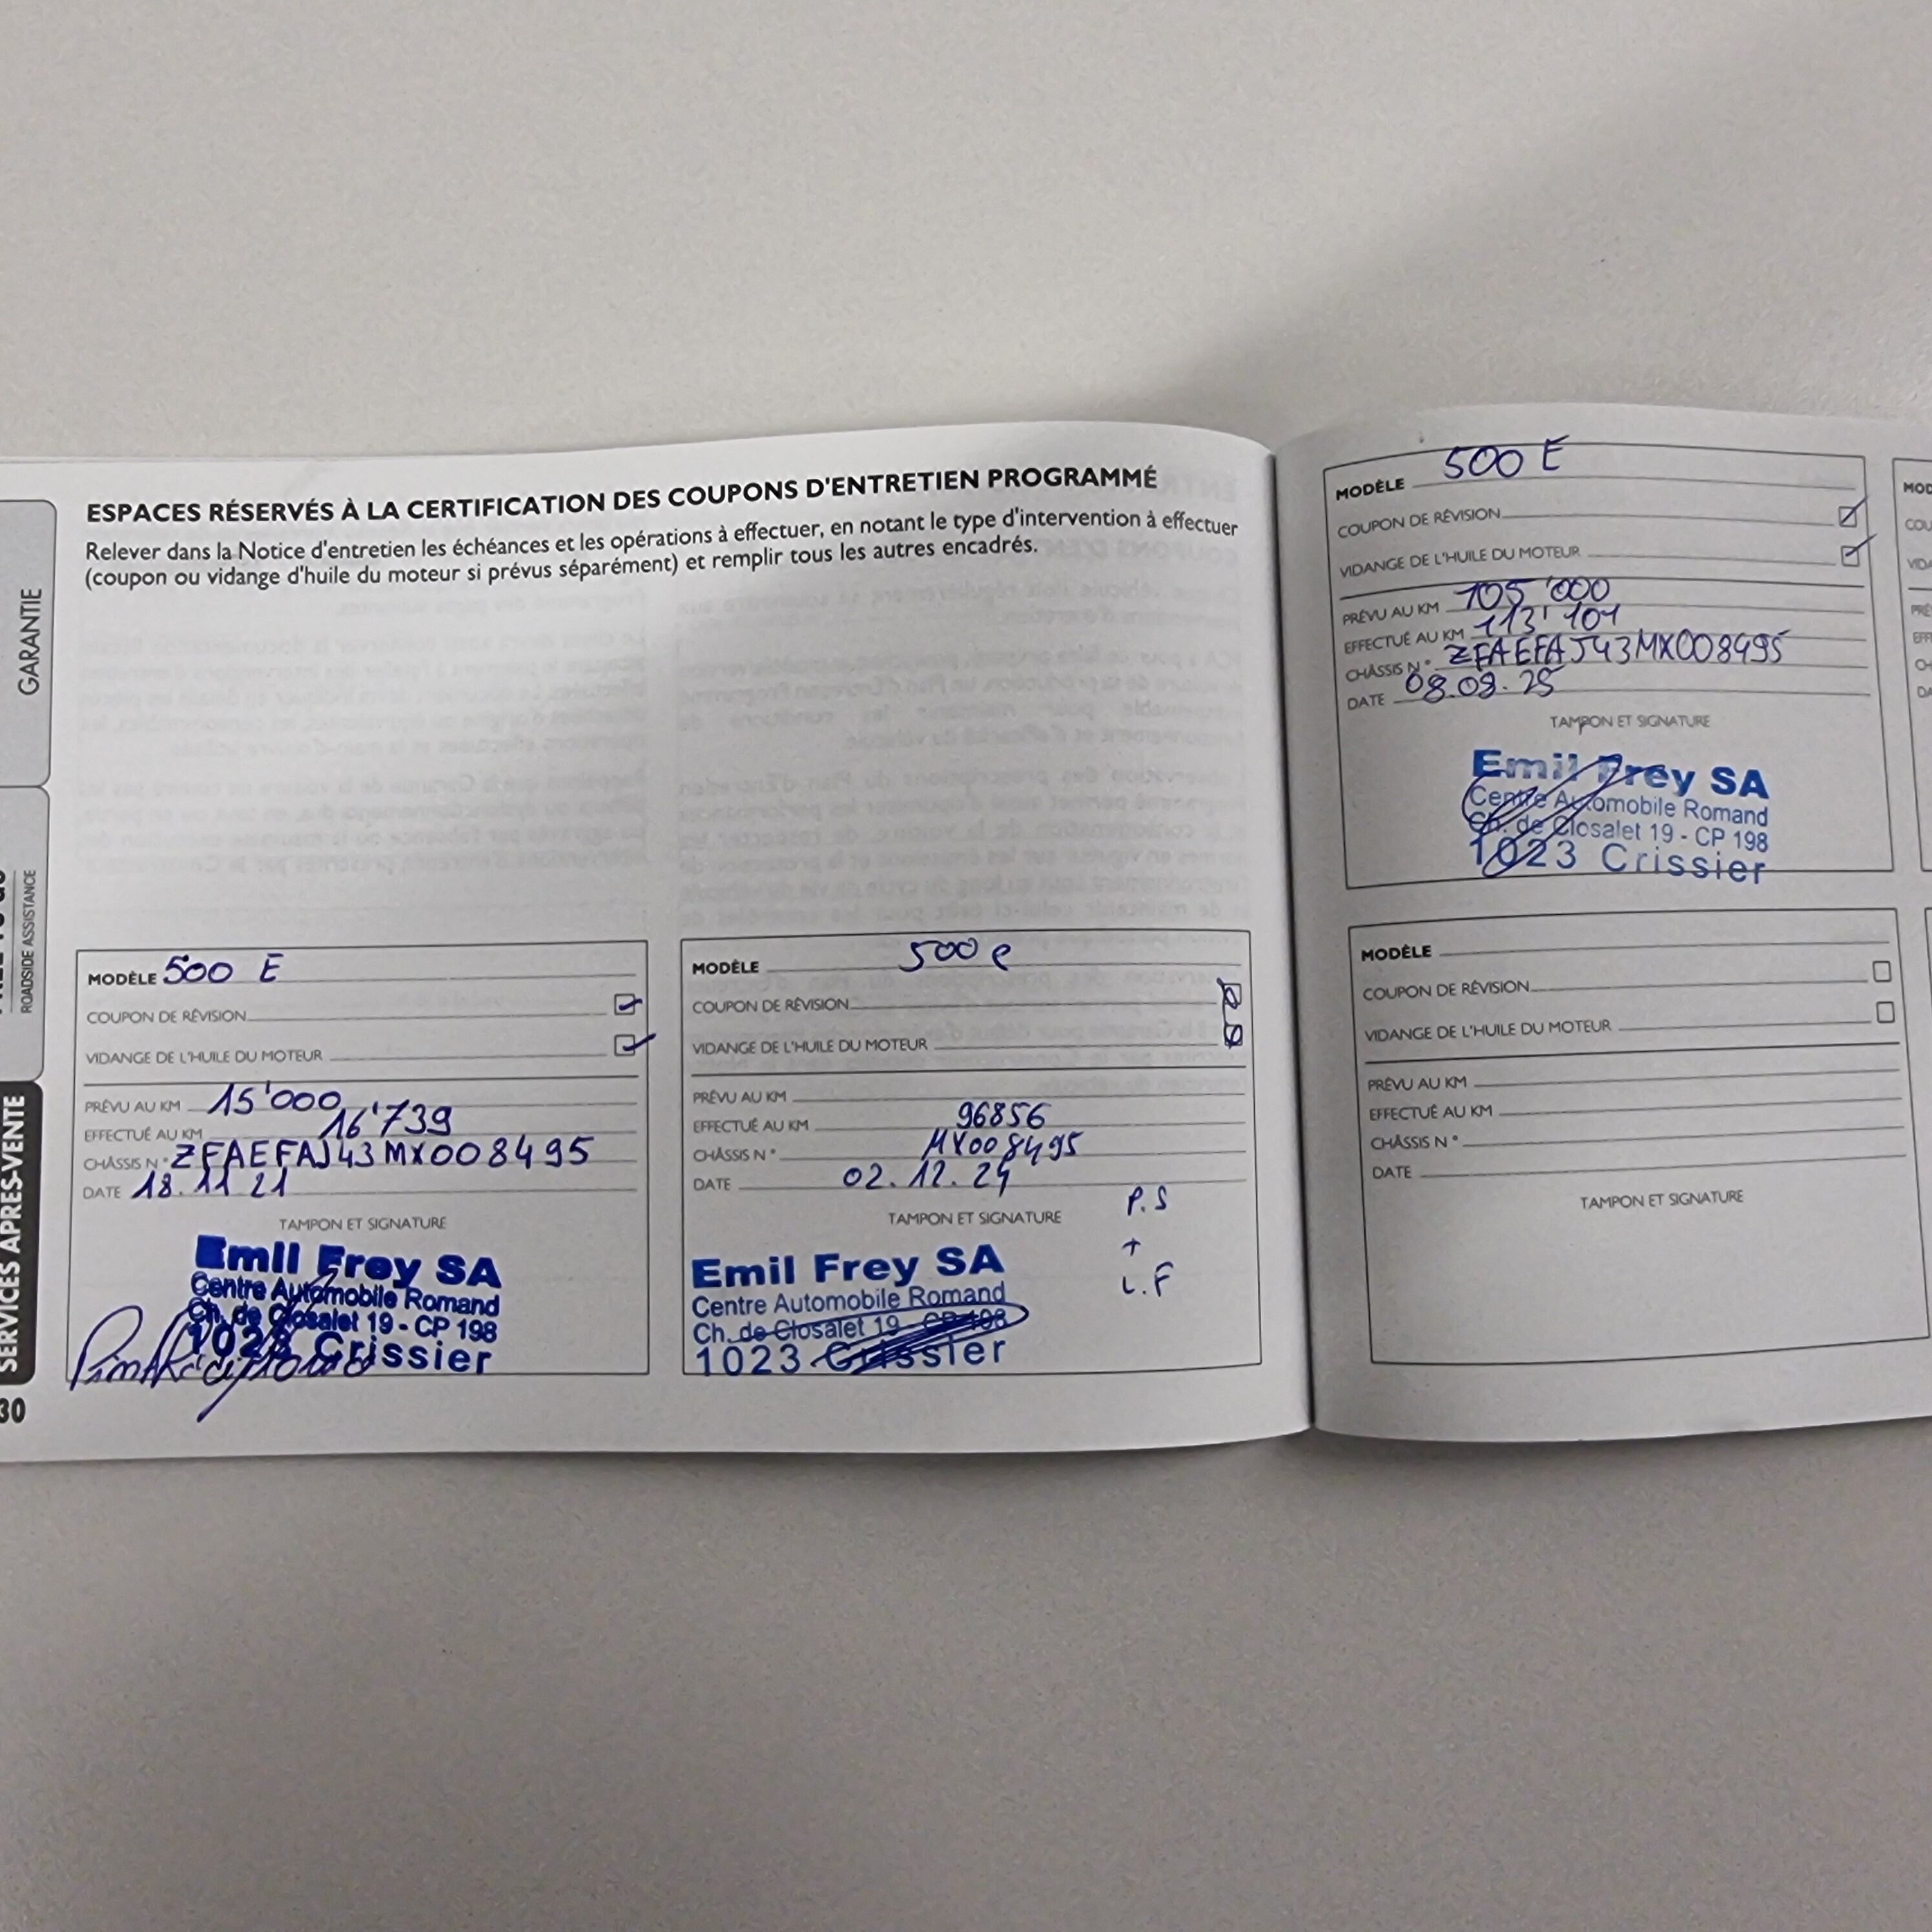 ESPACES RÉSERVÉS À LA CERTIFICATION DES COUPONS D'ENTRETIEN PROGRAMMÉ
Relever dans la Notice d'entretien les échéances et les opérations à effectuer, en notant le type d'intervention à effectuer
(coupon ou vidange d'huile du moteur si prévus séparément) et remplir tous les autres encadrés.
GARANTIE
ROADSIDE ASSISTANCE
SERVICES APRÈS-VENTE
30
MODÈLE 500 E
COUPON DE RÉVISION
VIDANGE DE L'HUILE DU MOTEUR
PRÉVU AU KM 15'000
EFFECTUÉ AU KM 16'739
CHÂSSIS N° ZFAEFAJ43MX008495
DATE 18.11 21
TAMPON ET SIGNATURE
Emil Frey SA
Centre Automobile Romand
Ch. de Closalet 19 - CP 198
1023 Crissier
MODÈLE 500 e
COUPON DE RÉVISION
VIDANGE DE L'HUILE DU MOTEUR
PRÉVU AU KM
EFFECTUÉ AU KM 96856
CHÂSSIS N° MX008495
DATE 02.12.24
TAMPON ET SIGNATURE
P.S
+
L.F
Emil Frey SA
Centre Automobile Romand
Ch. de Closalet 19 - CP 198
1023 Crissier
MODÈLE 500 E
COUPON DE RÉVISION
VIDANGE DE L'HUILE DU MOTEUR
PRÉVU AU KM 105'000
EFFECTUÉ AU KM 113'101
CHÂSSIS N° ZFAEFAJ43MX008495
DATE 08.08.25
TAMPON ET SIGNATURE
Emil Frey SA
Centre Automobile Romand
Ch. de Closalet 19 - CP 198
1023 Crissier
MODÈLE
COUPON DE RÉVISION
VIDANGE DE L'HUILE DU MOTEUR
PRÉVU AU KM
EFFECTUÉ AU KM
CHÂSSIS N°
DATE
TAMPON ET SIGNATURE